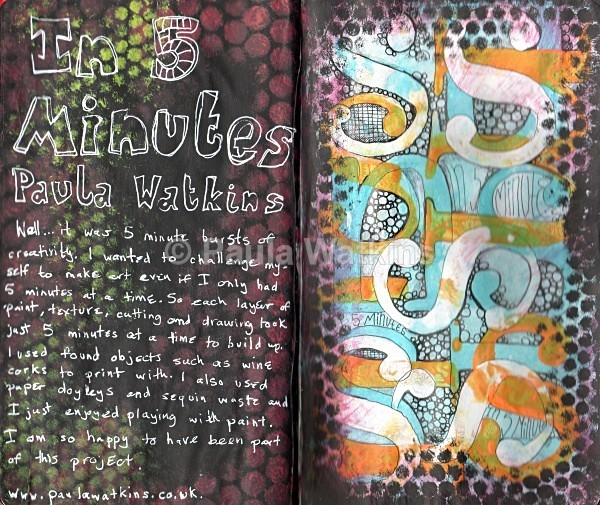 In 5
Minutes
Paula Watkins
Well... it was 5 minute bursts of
creativity. I wanted to challenge my-
self to make art even if I only had
5 minutes at a time. So each layer of
paint, texture, cutting and drawing took
just 5 minutes at a time to build up.
I used found objects such as wine
corks to print with. I also used
paper doyleys and sequin waste and
I just enjoyed playing with paint.
I am so happy to have been part
of this project.
www.paulawatkins.co.uk.
© Paula Watkins
5 MINUTES